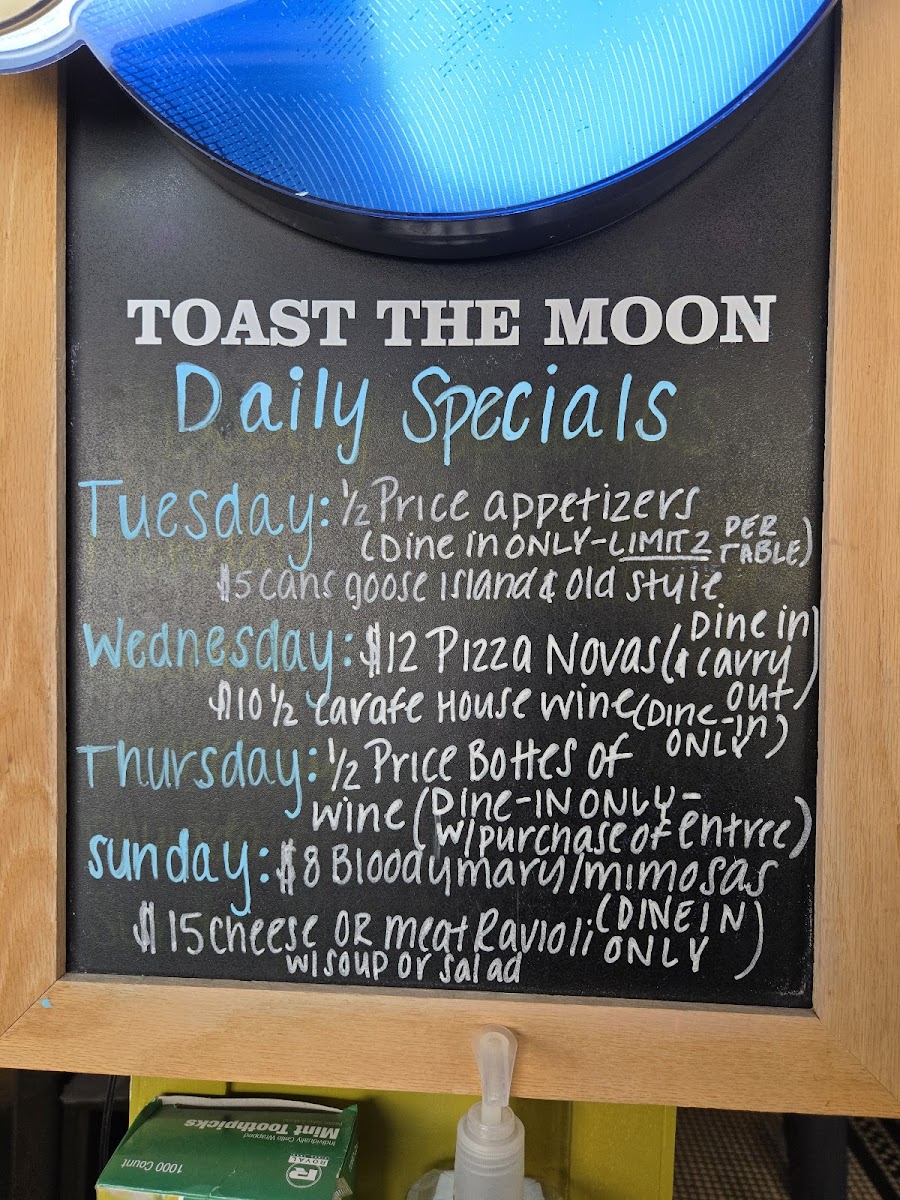 TOAST THE MOON
Daily Specials
Tuesday: 1/2 Price appetizers
(Dine in ONLY-LIMIT 2 PER TABLE)
$5 cans goose Island & Old Style
Wednesday: $12 Pizza Novas (Dine in & carry out)
$10 1/2 carafe House wine (Dine-in ONLY)
Thursday: 1/2 Price Bottles of
wine (Dine-IN ONLY-
w/purchase of entree)
Sunday: $8 Bloodymary/mimosas
$15 cheese OR meat Ravioli (DINE IN ONLY)
w/soup or salad
Mint Toothpicks
Individually Cello Wrapped
R
ROYAL
1000 Count